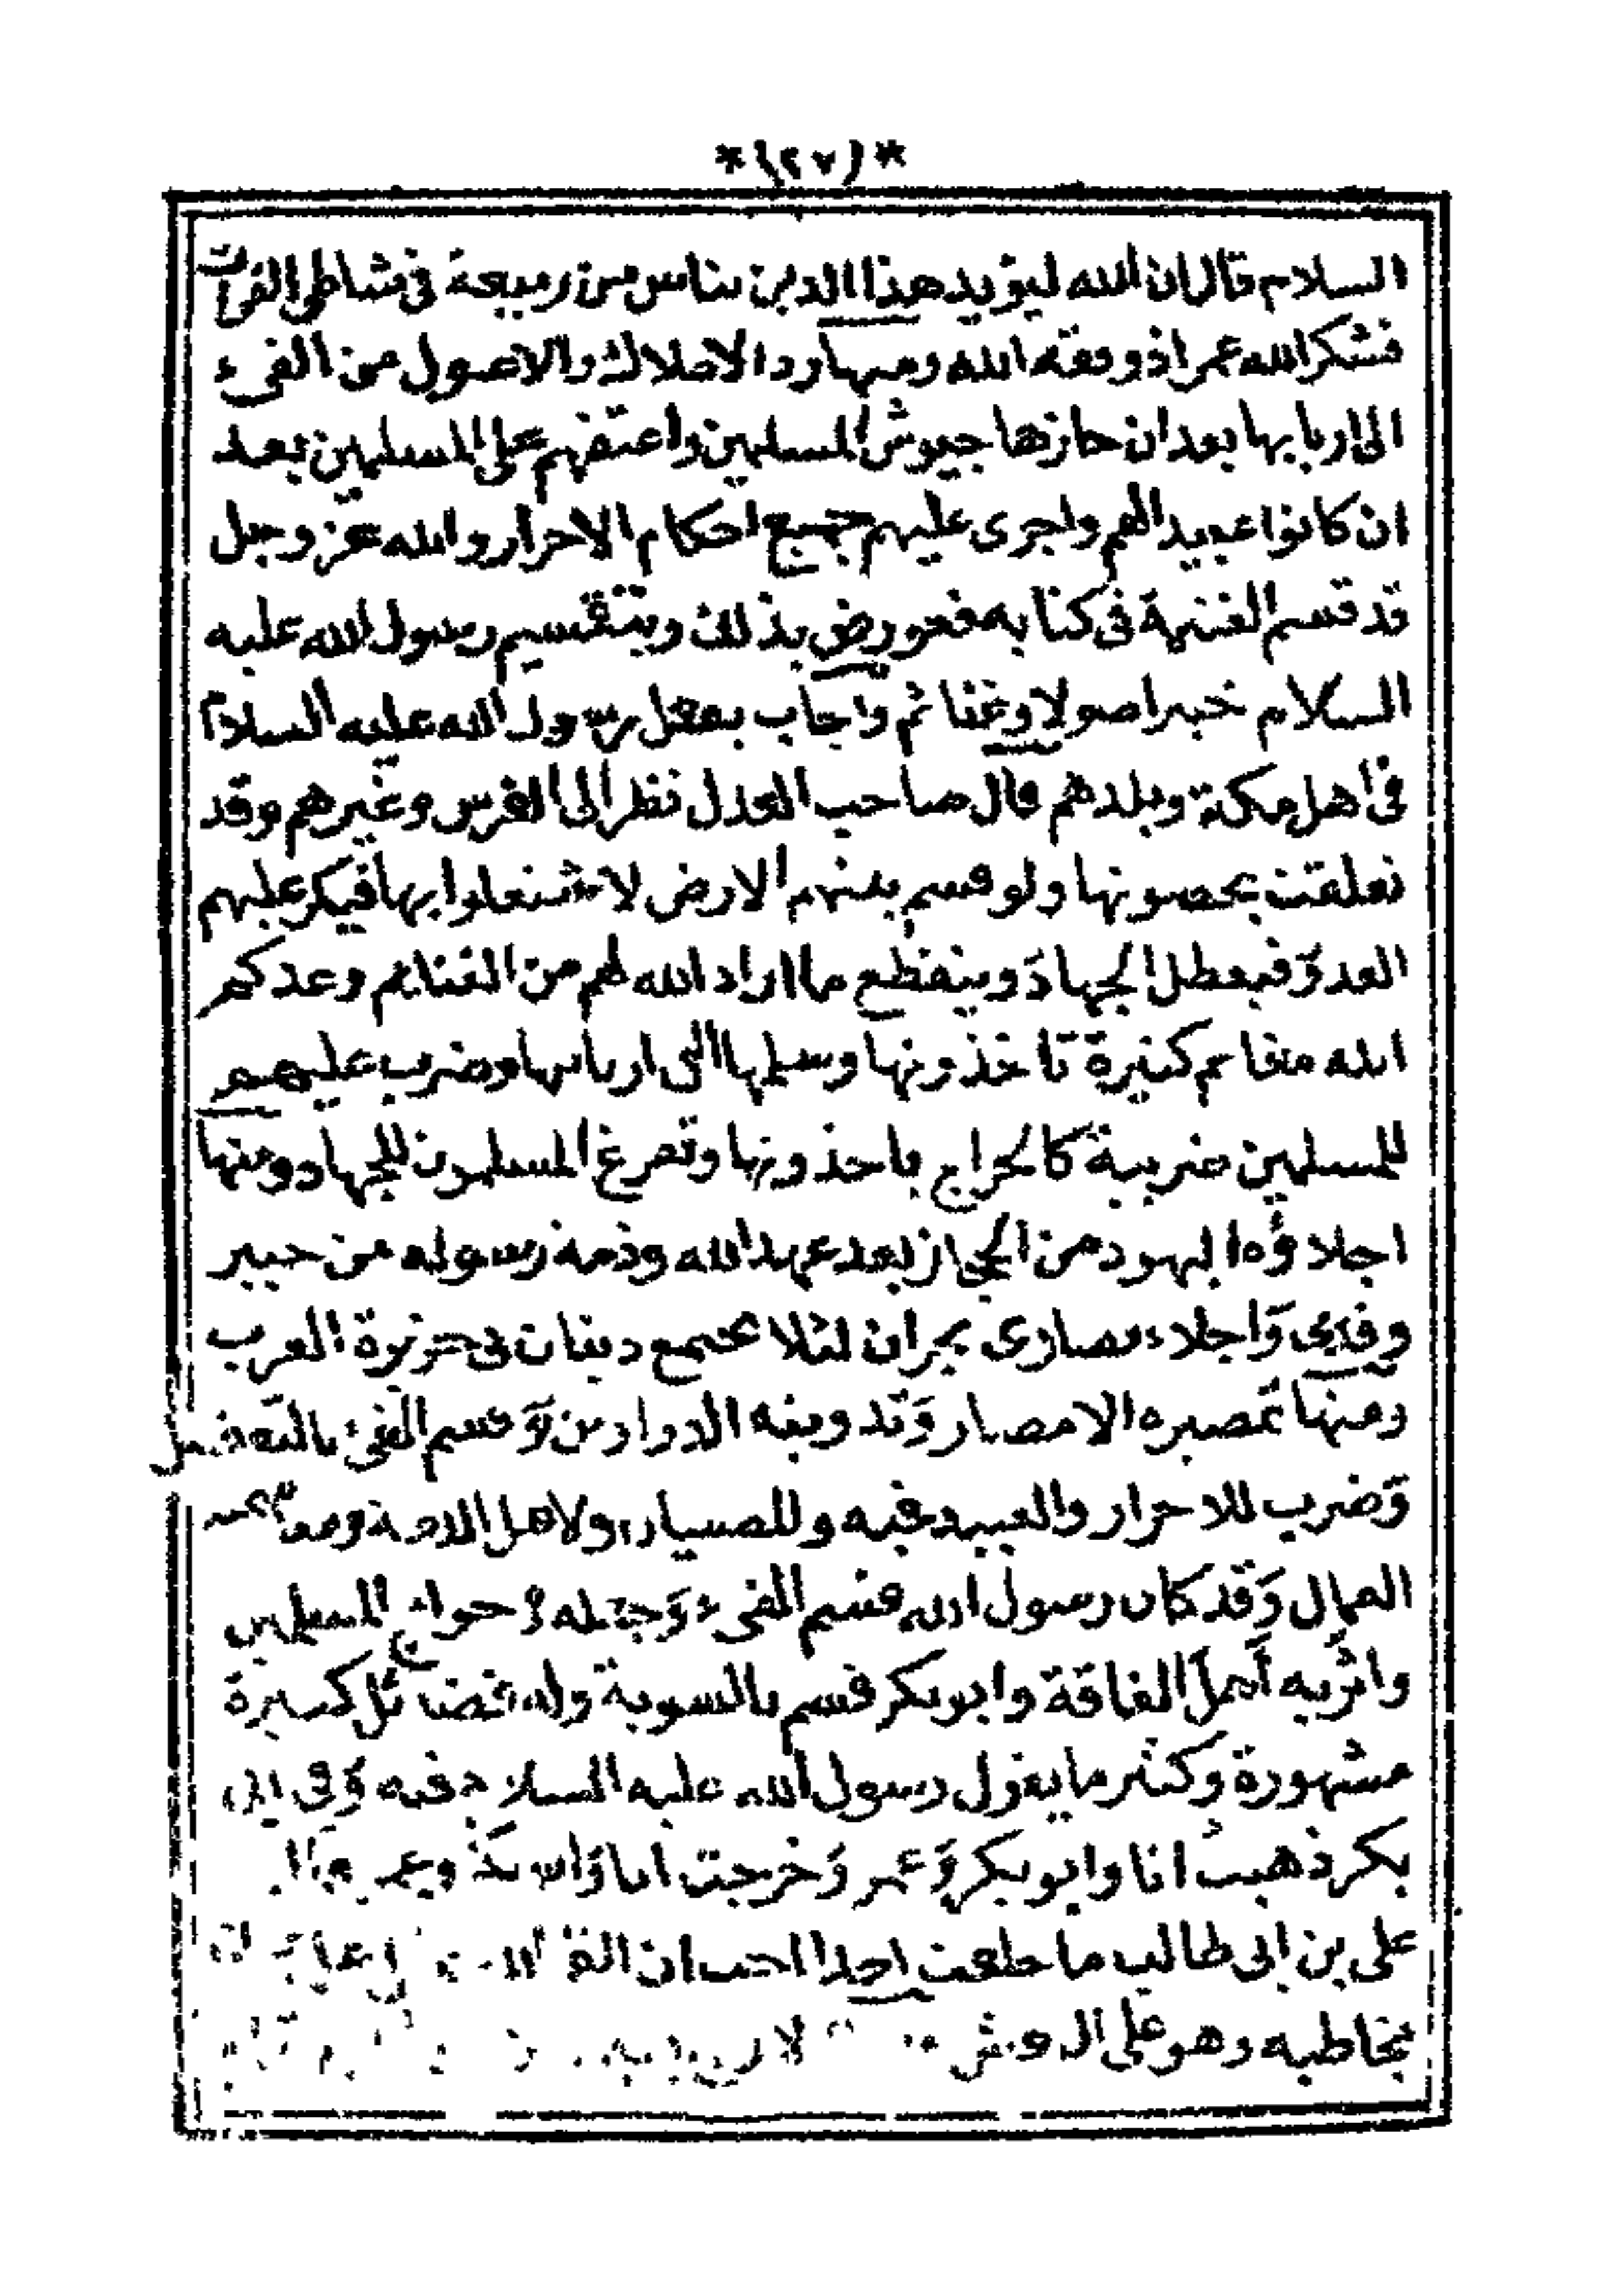 *(٢٧)*
السلام قال ان الله ليؤيد هذا الدين بناس من ربيعة فى شاطى الفرات
فشكر الله عمر اذ وفقه الله ومنها رد الاملاك والاصول من الفىء
الى اربابها بعد ان حازها جيوش المسلمين واعتقهم على المسلمين بعد
ان كانوا عبيدا لهم واجرى عليهم جميع احكام الاحرار والله عز وجل
قد قسم الغنيمة فى كتابه فعورض بذلك وبتقسيم رسول الله عليه
السلام خيبر اصولا وغنائم واجاب بفعل رسول الله عليه السلام
فى اهل مكة وبلدهم قال صاحب العدل نظر الى الفرس وغيرهم وقد
تعلقت بحصونها ولو قسم بينهم الارض لاشتغلوا بها فيكر عليهم
العدوّ فيعطل الجهاد وَينقطع ما اراد الله لهم من الغنايم وعدكم
الله مغانم كثيرة تاخذونها وسلمها الى اربابها وضرب عليهم
للمسلمين ضريبة كالخراج ياخذونها وتفرغ المسلمون للجهاد ومنها
اجلاؤه اليهود من الحجاز بعد عهد الله وذمة رسوله من خيبر
وفدك وَاجلاء نصارى نجران لئلا تجتمع دينان فى جزيرة العرب
ومنها تمصيره الامصار وَتدوينه الدواوين وَقسم الفىء بالتفضيل
وَضرب للاحرار والعبيد فيه وللصبيان ولاهل الذمة
العمال وَقد كان رسول الله قسم الفىء وَجعله فى حوائج المسلمين
واثر به اَهل الفاقة وابو بكر قسم بالسوية وله فضائل كثيرة
مشهورة وَكثير ما يقول رسول الله عليه السلام فيه وَفى ابى
بكر ذهبت انا وابو بكر وَعمر وَخرجت انا وَابو بكر وعمر
على بن ابى طالب ما خلفت احدا احب ان القى الله
يخاطبه وهو على